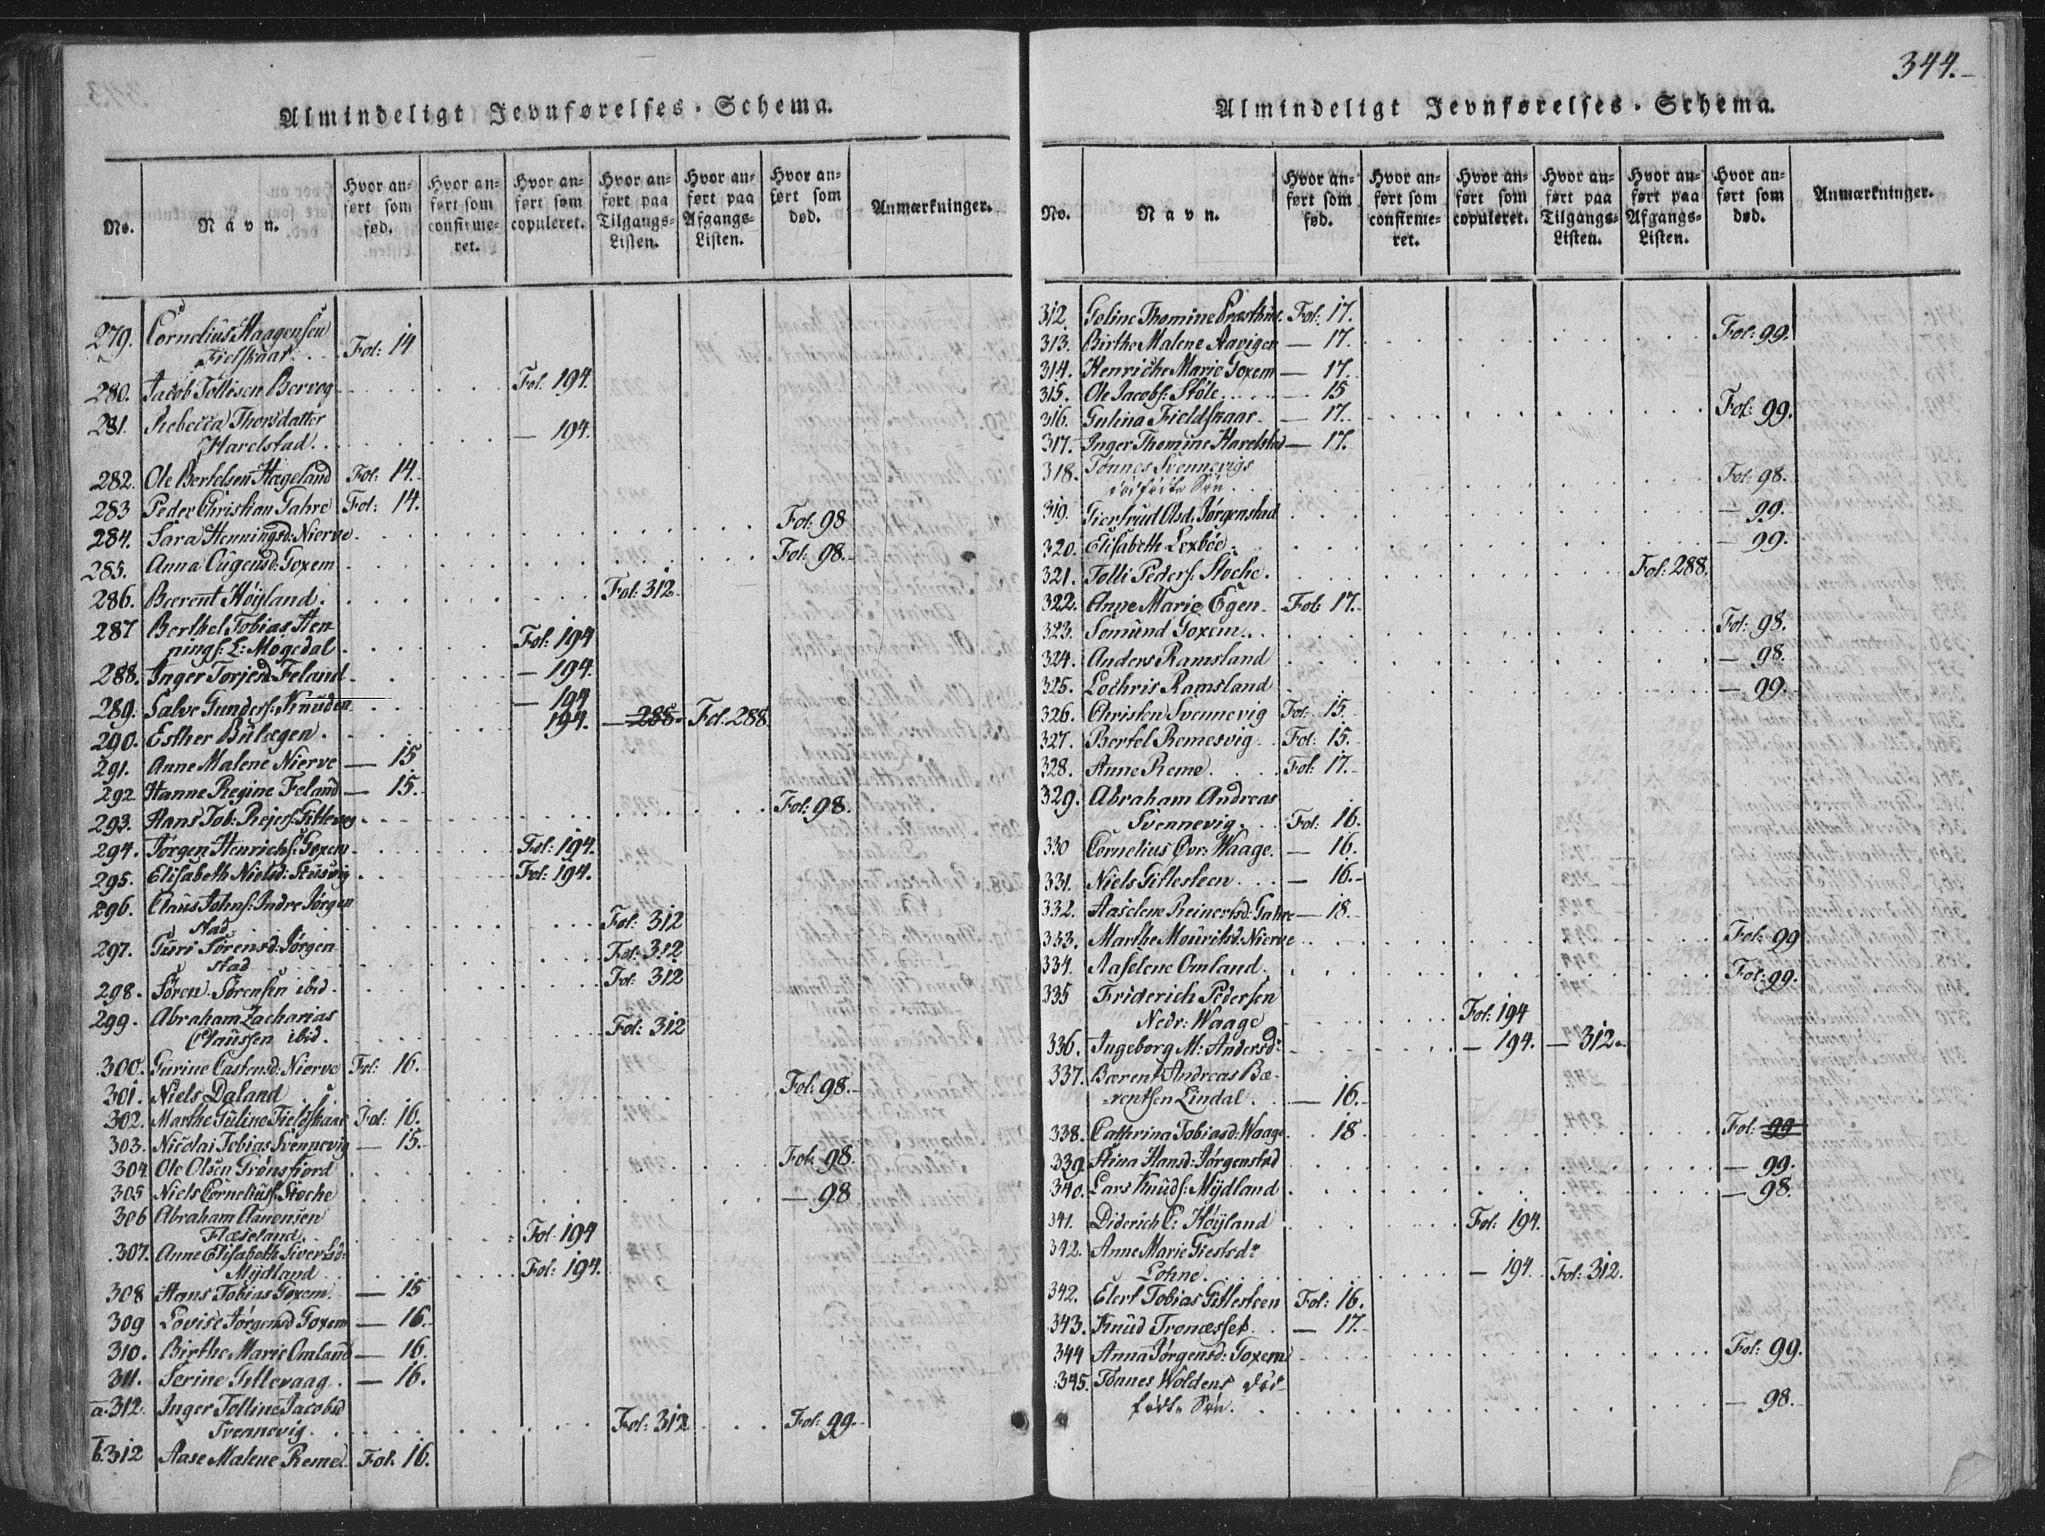 344.
Almindeligt Jevnførelses-Schema.
No.
Navn.
Hvor anført som fød.
Hvor anført som confirmeret.
Hvor anført som copuleret.
Hvor anført paa Tilgangs-Listen.
Hvor anført paa Afgangs-Listen.
Hvor anført som død.
Anmærkninger.
279. Cornelius Haagensen
Fielskaar. Fol: 14
280. Jacob Tollisen Bervog Fol. 194.
281. Rebecca Thorsdatter
Harelstad. — 194.
282. Ole Bertelsen Hægeland Fol: 14.
283 Peder Christian Jahre Fol: 14.
284. Sara Henningsd: Nierve Fol: 98
285. Anna Eugensd: Goxem Fol: 98.
286. Beerent Høyland. Fol: 312
287 Berthel Tobias Hen-
nings: L: Mogedal Fol: 194
288. Inger Torjend: Feland — 194.
289. Salve Gunders: Knuden — 194
290. Esther Bulægen. 194. — 288- Fol. 288
291. Anne Malene Nierve — 15
292 Hanne Regine Feland — 15.
293. Hans Tob: Rejers: Gitlevog Fol: 98.
294. Jørgen Henrichs: Goxem Fol: 194.
295. Elisabeth Nielsd: Stusvig Fol: 194.
296. Claus Johns: Indre Jørgen
stad Fol: 312
297. Guri Sørensd: Jørgen
stad Fol: 312
298. Søren Sørensen ibid Fol: 312
299. Abraham Zacharias
Claussen ibid. Fol: 312
300. Gurine Castensd: Nierve Fol: 16.
301. Niels Daland Fol: 98.
302. Marthe Guline Fieldskaar Fol: 16.
303. Nicolai Tobias Svennevig — 15.
304 Ole Olsen Grønsfiord Fol: 98.
305 Niels Cornelius: Stoche — 98
306 Abraham Aanonsen
Flæseland. Fol: 194
307. Anne Elisabeth Siversd:
Mydland Fol: 194.
308 Hans Tobias Goxem. — 15
309 Lovise Jørgensd Goxem — 16.
310. Birthe Marie Omland — 16.
311. Serine Gitlevaag. — 16.
a. 312. Inger Tolline Jacobsd
Svennevig. Fol: 312 Fol: 99.
b. 312 Aase Malene Reme. Fol. 16.
Almindeligt Jevnførelses-Schema.
No.
Navn.
Hvor anført som fød.
Hvor anført som confirmeret.
Hvor anført som copuleret.
Hvor anført paa Tilgangs-Listen.
Hvor anført paa Afgangs-Listen.
Hvor anført som død.
Anmærkninger.
312. Goline Thomine Fol: 17.
313. Birthe Malene Aavigen — 17. Fol: 99.
314. Henriche Marie Goxem — 17.
315. Ole Jacobs: Støle — 15
316. Gulina Fieldskaar. — 17. Fol: 99.
317. Inger Thomine Harelstad — 17.
318. Tønnes Svennevigs
dødfødte Søn. Fol: 98.
319. Giertrud Olsd: Jørgenstad — 99.
320. Elisabeth Lexbøe. — 99.
321. Tolli Peders: Stoche. Fol: 288.
322. Anne Marie Egen. Fol. 17.
323. Somund Goxem. Fol: 98.
324. Anders Ramsland — 98.
325. Lochris Ramsland — 99.
326. Christen Svennevig Fol: 15.
327. Bertel Remesvig Fol: 15.
328. Anne Reme. Fol: 17.
329. Abraham Andreas
Svennevig. Fol: 16.
330 Cornelius Øvr: Waage. — 16.
331. Niels Gitlesteen — 16.
332. Aaselene Reinertsd: Jahre — 18.
333. Marthe Mouritsd: Nierve Fol: 99
334. Aaselene Omland. Fol: 99.
335 Friderich Pedersen
Nedr: Waage Fol: 194
336. Ingeborg M: Andersd: — 194. — 312.
337. Bærent Andreas Bæ-
rentsen Lindal. — 16.
338. Cathrina Tobiasd: Waage 18. Fol: 99
339. Stina Hansd: Jørgenstad — 99.
340. Lars Knuds: Mydland — 98.
341. Diderich E: Høyland Fol: 194.
342. Anne Marie Giertsdr
Lohne. — 194. Fol: 312.
342. Elert Tobias Gitlesteen Fol: 16.
343. Knud Tronæsset. — 17.
344 Anna Jørgensd: Goxem Fol: 99.
345. Tønnes Woldens død-
fødte Søn. — 98.